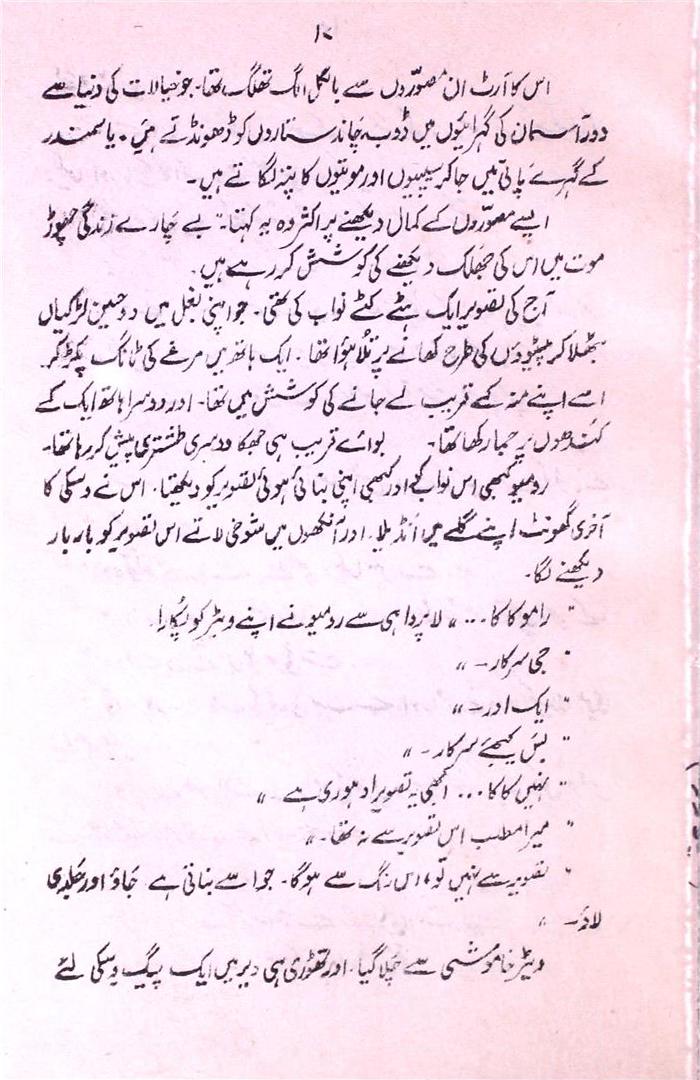 ۱۷
اس کا آرٹ ان مصوّروں سے بالکل الگ تھلگ تھا۔ جو خیالات کی دنیا سے
دور آسمان کی گہرائیوں میں ڈوب چاند ستاروں کو ڈھونڈتے ہیں۔ یا سمندر
کے گہرے پانی میں جا کر سیپیوں اور موتیوں کا پتہ لگاتے ہیں۔
ایسے مصوّروں کے کمال دیکھنے پر اکثر وہ یہ کہتا۔ "بے چارے زندگی چھوڑ
موت میں اس کی جھلک دیکھنے کی کوشش کر رہے ہیں۔
آج کی تصویر ایک ہٹے کٹے نواب کی تھی۔ جو اپنی بغل میں دو حسین لڑکیاں
بٹھلا کر پیٹوؤں کی طرح کھانے پر تلا ہوا تھا۔ ایک ہاتھ میں مرغے کی ٹانگ پکڑ کر
اسے اپنے منہ کے قریب لے جانے کی کوشش میں تھا۔ اور دوسرا ہاتھ ایک کے
کندھوں پر جما رکھا تھا۔ بوائے قریب ہی جھکا دوسری طشتری پیش کر رہا تھا۔
رومیو کبھی اس نواب کو اور کبھی اپنی بنائی ہوئی تصویر کو دیکھتا۔ اس نے وسکی کا
آخری گھونٹ اپنے گلے میں انڈیلا۔ اور آنکھوں میں شوخی لاتے اس تصویر کو بار بار
دیکھنے لگا۔
"راموکاکا..." لاپرواہی سے رومیو نے اپنے ویٹر کو پکارا۔
"جی سرکار۔"
"ایک اور۔"
"بس کیجئے سرکار۔"
"نہیں کاکا... ابھی یہ تصویر ادھوری ہے"
"میرا مطلب اس تصویر سے نہ تھا۔"
"تصویر سے نہیں تو، اس رنگ سے ہوگا۔ جو اسے بناتی ہے۔ جاؤ اور جلدی
لاؤ۔"
ویٹر خاموشی سے چلا گیا۔ اور تھوڑی ہی دیر میں ایک پیگ وسکی لئے